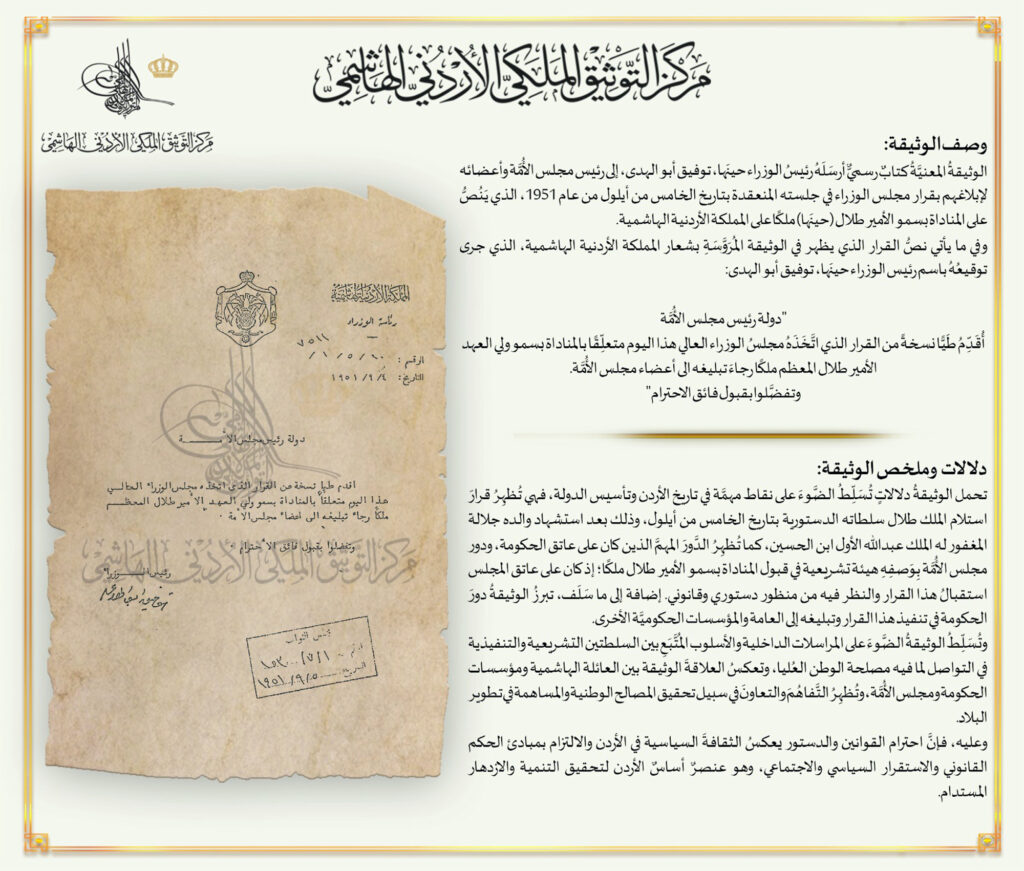 مركز التوثيق الملكي الأردني الهاشمي
مركز التوثيق الملكي الأردني الهاشمي
وصف الوثيقة:
الوثيقةُ المعنيَّةُ كتابٌ رسميٌّ أرسَلَهُ رئيسُ الوزراء حينَها، توفيق أبو الهدى، إلى رئيس مجلس الأُمَّة وأعضائه
لإبلاغهم بقرار مجلس الوزراء في جلسته المنعقدة بتاريخ الخامس من أيلول من عام 1951، الذي يَنُصُّ
على المناداة بسمو الأمير طلال (حينَها) ملكًا على المملكة الأردنية الهاشمية.
وفي ما يأتي نصُّ القرار الذي يظهر في الوثيقة المُرَوَّسَةِ بشعار المملكة الأردنية الهاشمية، الذي جرى
توقيعُهُ باسم رئيس الوزراء حينَها، توفيق أبو الهدى:
"دولة رئيس مجلس الأُمَّة
أُقَدِّمُ طَيًّا نسخةً من القرار الذي اتَّخَذَهُ مجلسُ الوزراء العالي هذا اليوم متعلِّقًا بالمناداة بسمو ولي العهد
الأمير طلال المعظم ملكًا رجاءَ تبليغه الى أعضاء مجلس الأمَّة.
وتفضَّلوا بقبول فائق الاحترام"
دلالات وملخص الوثيقة:
تحمل الوثيقةُ دلالاتٍ تُسَلِّطُ الضَّوءَ على نقاط مهمَّة في تاريخ الأردن وتأسيس الدولة، فهي تُظهِرُ قرارَ
استلام الملك طلال سلطاته الدستورية بتاريخ الخامس من أيلول، وذلك بعد استشهاد والده جلالة
المغفور له الملك عبدالله الأول ابن الحسين، كما تُظهِرُ الدَّورَ المهمَّ الذين كان على عاتق الحكومة، ودور
مجلس الأُمَّة بِوَصفِهِ هيئة تشريعية في قبول المناداة بسمو الأمير طلال ملكًا؛ إذ كان على عاتق المجلس
استقبالُ هذا القرار والنظر فيه من منظور دستوري وقانوني. إضافة إلى ما سَلَف، تبرزُ الوثيقةُ دورَ
الحكومة في تنفيذ هذا القرار وتبليغه إلى العامة والمؤسسات الحكوميَّة الأخرى.
وتُسَلِّطُ الوثيقةُ الضَّوءَ على المراسلات الداخلية والأسلوب المُتَّبَعِ بين السلطتين التشريعية والتنفيذية
في التواصل لما فيه مصلحة الوطن العُليا، وتعكسُ العلاقةَ الوثيقة بين العائلة الهاشمية ومؤسسات
الحكومة ومجلس الأُمَّة، وتُظهِرُ التَّفاهُمَ والتعاونَ في سبيل تحقيق المصالح الوطنية والمساهمة في تطوير
البلاد.
وعليه، فإنَّ احترام القوانين والدستور يعكسُ الثقافةَ السياسية في الأردن والالتزام بمبادئ الحكم
القانوني والاستقرار السياسي والاجتماعي، وهو عنصرٌ أساسٌ لتحقيق التنمية والازدهار
المستدام.
المملكة الأردنية الهاشمية
رئاسة الوزراء
٧٥١١
الرقم: ١/٥/١٠/
التاريخ: ١٩٥١/٩/٤
دولة رئيس مجلس الأمـــة
اقدم طيا نسخة من القرار الذى اتخذه مجلس الوزراء العالي
هذا اليوم متعلقا بالمناداة بسمو ولي العهد الأمير طلال المعظم
ملكا رجاء تبليغه الى اعضاء مجلس الأمة .
وتفضلوا بقبول فائق الأحترام .
مركز التوثيق الملكي الأردني الهاشمي
رئيس الـوزراء
مجلس النواب
التاريخ ١٩٥١/٩/٥